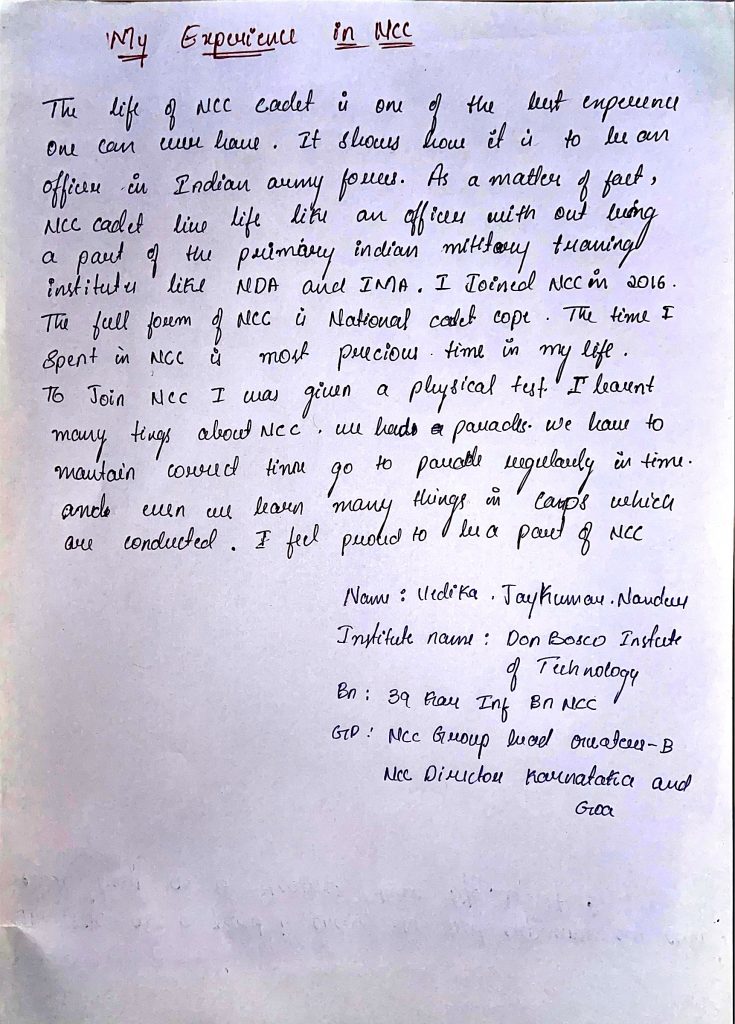 My Experience in NCC
The life of NCC cadet is one of the best experience
one can ever have. It shows how it is to be an
officer in Indian army forces. As a matter of fact,
NCC cadet live life like an officer with out being
a part of the primary indian military traning
institutes like NDA and IMA. I Joined NCC in 2016.
The full form of NCC is National cadet cope. The time I
Spent in NCC is most precious time in my life.
To Join NCC I was given a physical test I learnt
many tings about NCC. we had a parades. we have to
maintain correct time go to parade regularly in time.
and even we learn many things in camps which
are conducted. I feel proud to be a part of NCC
Name: Vedika. Jaykumar.
Institute name: Don Bosco Instute
of Technology
Bn: 39 Kar Inf Bn NCC
GP: NCC Group head quaters-B
NCC Director Karnataka and
Goa